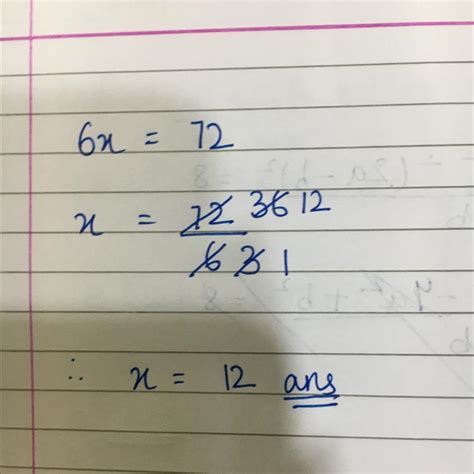 6x = 72
x = 72 36 12
6 3 1
∴ x = 12 ans